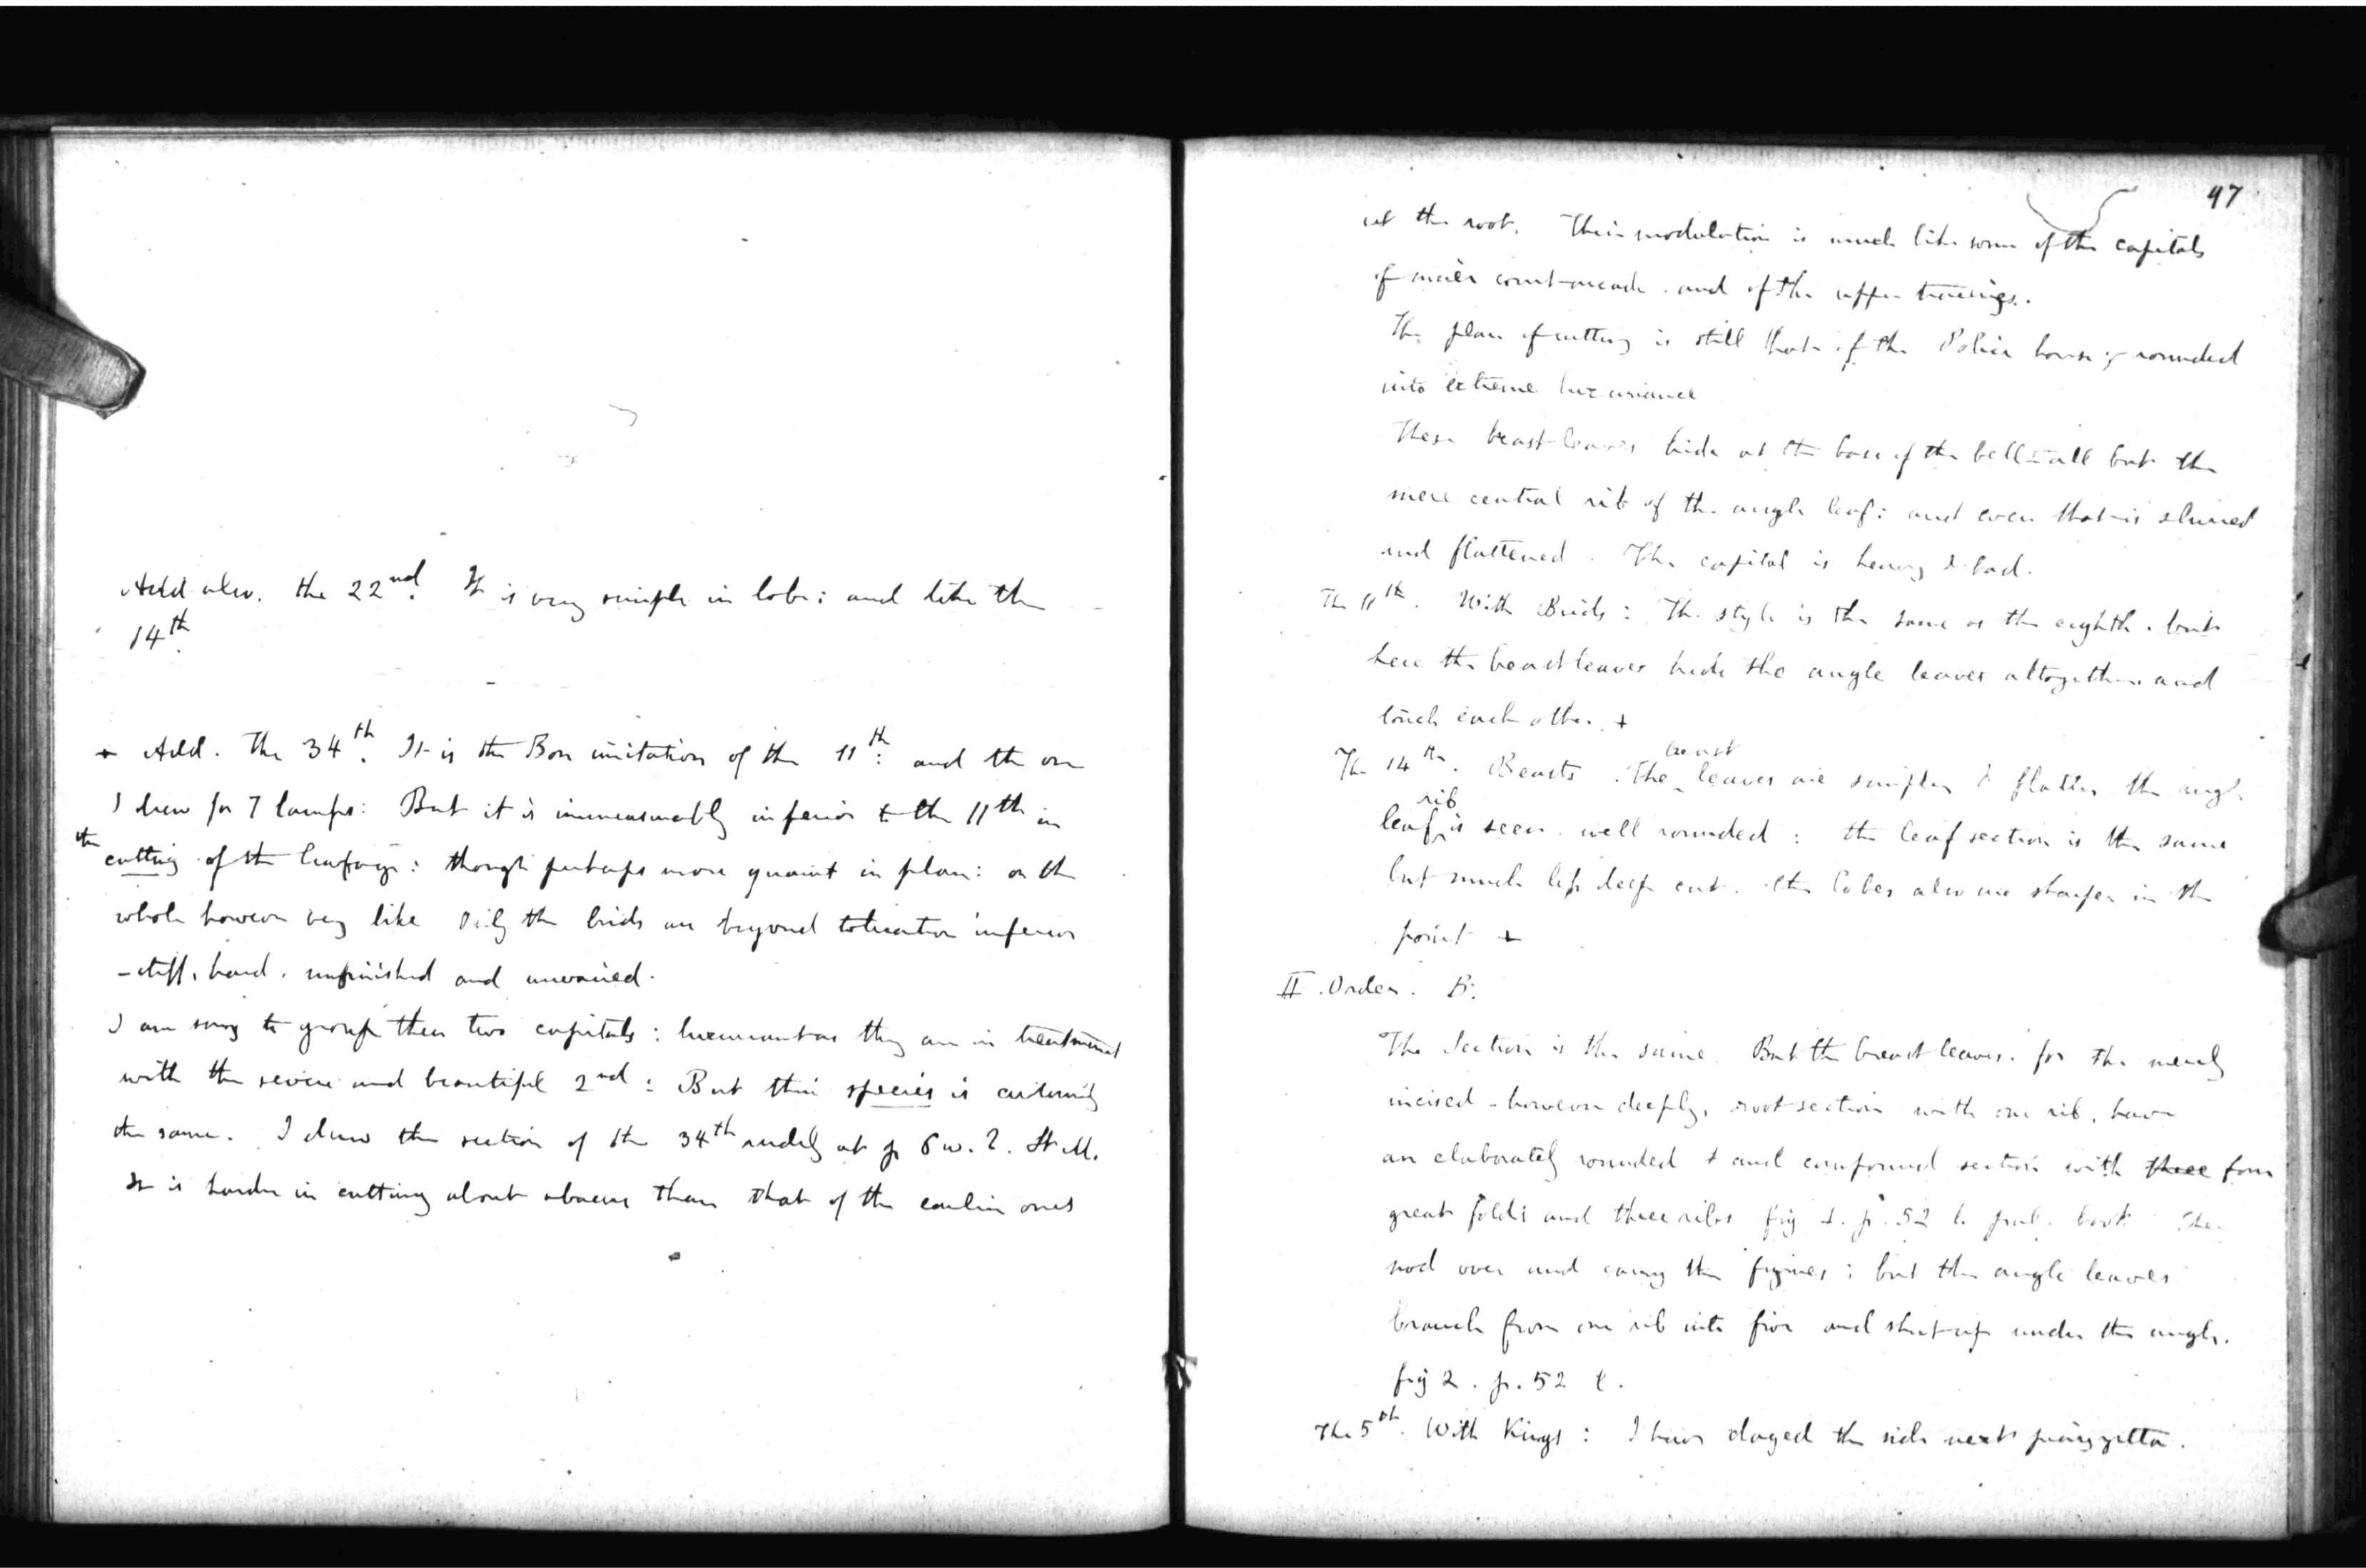 Add also. the 22nd. It is very simple in lobe: and like the
14th.
+ Add. The 34th. It is the Bon imitation of the 11th: and the one
I drew for 7 lamps: But it is immeasurably inferior to the 11th in
the cutting of the leafage: though perhaps more quaint in plan: on the
whole however very like only the birds are beyond toleration inferior
- stiff, hard. unfinished and unvaried.
I am sorry to group these two capitals: luxuriant as they are in treatment
with the severe and beautiful 2nd: But their species is certainly
the same. I drew the section of the 34th rudely at p 6 w. 2. St M.
It is harder in cutting about abacus than that of the earlier ones
97
at the root. Their modulation is much like some of the capitals
of main court arcade. and of the upper traceries.
The plan of cutting is still that of the Police house; rounded
into extreme luxuriance
These breast leaves hide at the base of the bell - all but the
mere central rib of the angle leaf: and even that is slurred
and flattened. The capital is heavy & bad.
The 11th. With Birds: The style is the same as the eighth. but
here the breast leaves hide the angle leaves altogether and
touch each other. +
The 14th. Beasts. The breast leaves are simpler & flatter the angle
leaf rib is seen. well rounded: the leaf section is the same
but much less deep cut. the lobes also are sharper in the
point +
II. Order. B.
The Section is the same. But the breast leaves. for the merely
incised - however deeply, root section with one rib, have
an elaborately rounded & and compound section with three four
great folds and three ribs fig 1. p. 52 l. book The
nod over and carry the figures: but the angle leaves
branch from one rib into five and shut up under the angle.
fig 2. p. 52 l.
The 5th. With Kings: I have daged the side next piazzetta.